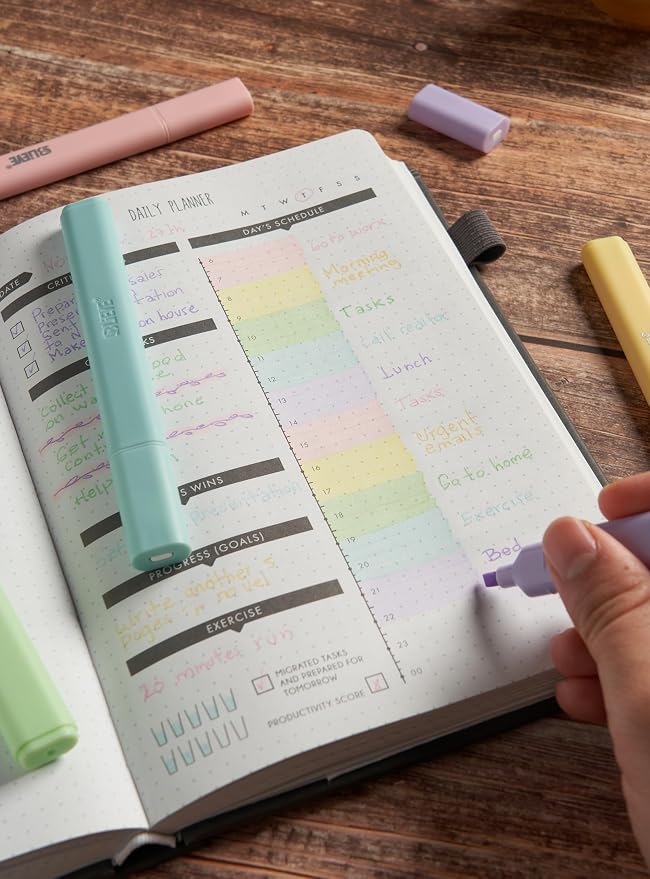 BLIEVE
DAILY PLANNER
M T W T F S S
DATE
DAY'S SCHEDULE
sales
Present
tation
Sent
on house
to
Make
Collect
ood
on wa
Get
home
cont
Help
S WINS
presentation
PROGRESS (GOALS)
Write another 5
pages in novel
EXERCISE
20 minutes run
MIGRATED TASKS
AND PREPARED FOR
TOMORROW
PRODUCTIVITY SCORE
6
7
8
9
10
11
12
13
14
15
16
17
18
19
20
21
22
23
00
Go to work
Morning
meeting
Tasks
Call realtor
Lunch
Tasks
Urgent
emails
Go to home
Exercise
Bed